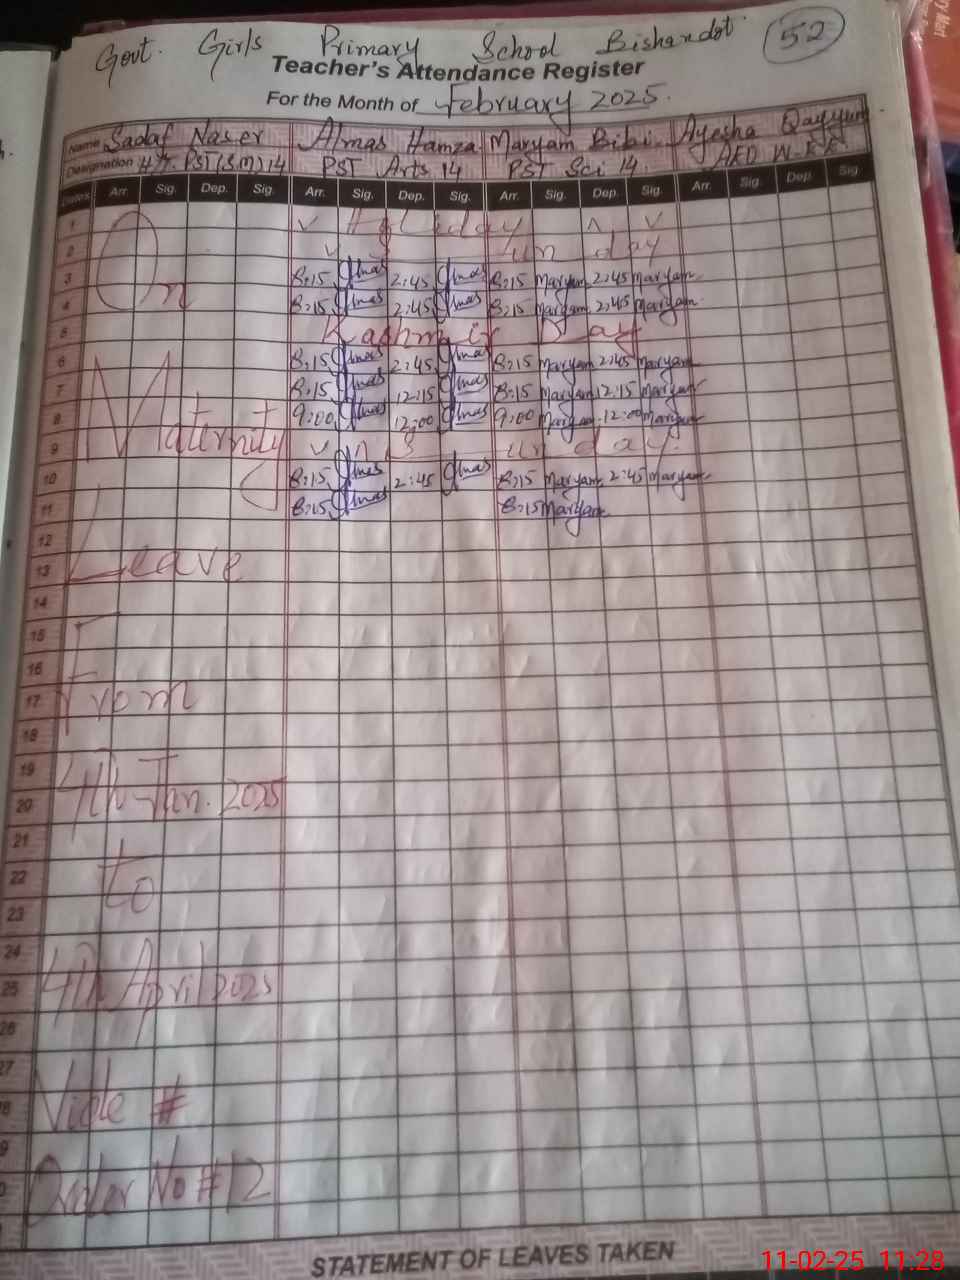 Govt. Girls Primary School Bishandot 52
Teacher's Attendance Register
For the Month of February 2025.
Name Sadaf Naser Almas Hamza Maryam Bibi Ayesha Qayyum
Designation PST (S,M) 14 PST Arts 14 PST Sci 14
Dates Arr. Sig. Dep. Sig. Arr. Sig. Dep. Sig. Arr. Sig. Dep. Sig. Arr. Sig. Dep. Sig
1 Holiday
2 Sunday
3 8:15 Almas 2:45 Almas 8:15 Maryam 2:45 Maryam
On
4 8:15 Almas 2:45 Almas 8:15 Maryam 2:45 Maryam
5 Kashmir Day
6 8:15 Almas 2:45 Almas 8:15 Maryam 2:45 Maryam
7 8:15 Almas 12:15 Almas 8:15 Maryam 12:15 Maryam
8 9:00 Almas 12:00 Almas 9:00 Maryam 12:00 Maryam
9 Maternity Sunday
10 8:15 Almas 2:45 Almas 8:15 Maryam 2:45 Maryam
11 8:15 Almas 8:15 Maryam
12
13 Leave
14
15
16
17 From
18
19
20 4th Jan. 2025
21
22 to
23
24
25 4th April 2025
26
27
28 Vide #
29
30 Order No # 12
STATEMENT OF LEAVES TAKEN
11-02-25 11:28